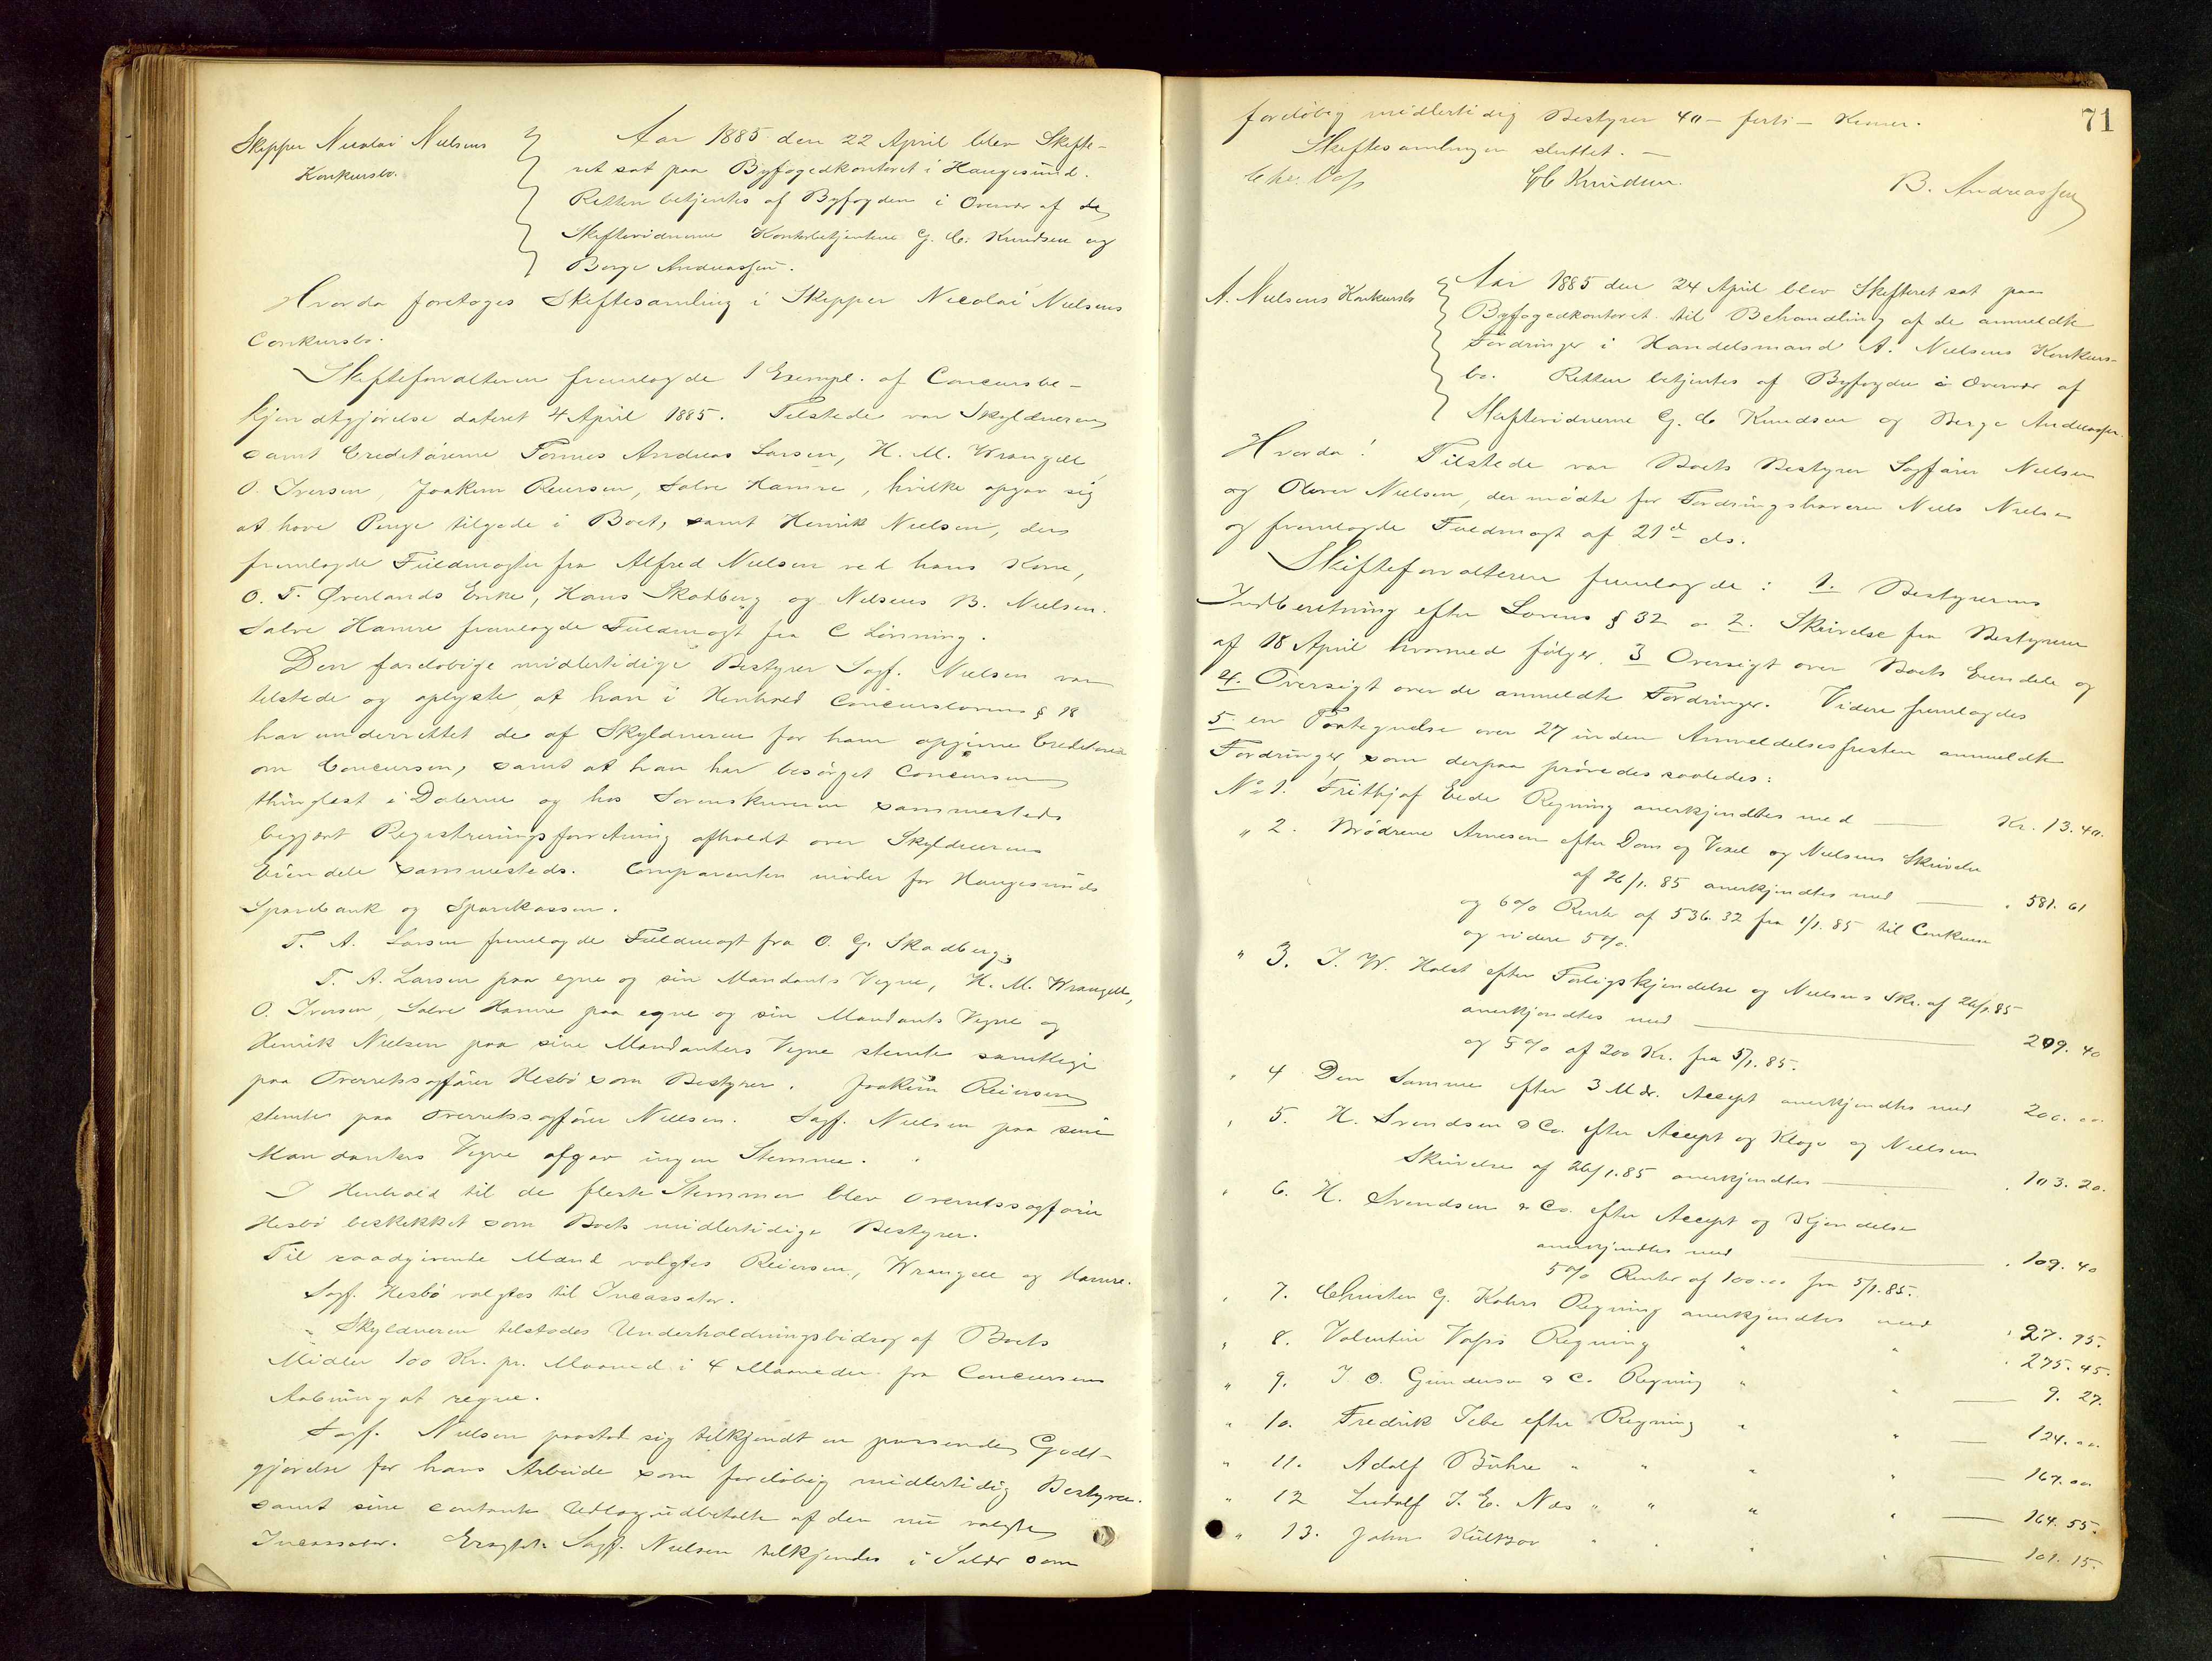 Skipper Nicolai Nielsens
Konkursbo.
Aar 1885 den 22 April blev Skifte-
ret sat paa Byfogedkontoret i Haugesund.
Retten betjentes af Byfogden i Overvær af de
Skiftevidnerne Kontorbetjentene G. C. Knudsen og
Berge Andreassen.
Hvorda foretoges Skiftesamling i Skipper Nicolai Nielsens
Conkursbo.
Skifteforvalteren fremlagde 1 Exempl. af Concursbe-
kjendtgjørelse dateret 4 April 1885. Tilstede var Skyldneren
samt Creditorerne Tønnes Andreas Larsen, H. M. Wrangell
O. Iversen, Joakim Reiersen, Salve Hamre, hvilke opgav sig
at have Penge tilgode i Boet, samt Henrik Nielsen, der
fremlagde Fuldmagter fra Alfred Nielsen ved hans Kone,
O. T. Øverlands Enke, Hans Skadberg og Nilsens B. Nielsen.
Salve Hamre fremlagde Fuldmagt fra C Lønning.
Den foreløbige midlertidige Bestyrer Sagf. Nielsen var
tilstede og oplyste at han i Henhold Concurslovens § 18
har underrettet de af Skyldneren for ham opgivne Creditorer
om Concursen, samt at han har besørget Concursen
thinglæst i Dalerne og hos Sorenskriveren sammesteds
begjært Registreringsforretning afholdt over Skyldnerens
Eiendele sammesteds. Comparenten møder for Haugesunds
Sparebank og Sparekassen.
T. A. Larsen fremlagde Fuldmagt fra O. G. Skadberg.
T. A. Larsen paa egne og sin Mandants Vegne, H. M. Wrangell,
O. Iversen, Salve Hamre paa egne og sin Mandants Vegne og
Henrik Nielsen paa sine Mandanters Vegne stemte samtlige
paa Overretssagfører Hesbø som Bestyrer. Joakim Reiersen
stemte paa Overretssagfører Nielsen. Sagf. Nielsen paa sine
Mandanters Vegne afgav ingen Stemme.
I Henhold til de fleste Stemmer blev Overretssagfører
Hesbø beskikket som Boets midlertidige Bestyrer.
Til raadgivende Mænd valgtes Reiersen, Wrangell og Hamre.
Sagf. Hesbø valgtes til Incassator.
Skyldneren tilstodes Underholdningsbidrag af Boets
Midler 100 Kr. pr. Maaned i 4 Maaneder fra Concursens
Aabning at regne.
Sagf. Nielsen paastod sig tilkjendt en passende Godt-
gjørelse for hans Arbeide som foreløbig midlertidig Bestyrer
samt sine contante Udlæg udbetalte af den nu valgte
Incassator. Sagf. Nielsen tilkjendes i Salær som
71
foreløbig midlertidig Bestyrer 40 - forti - Kroner.
Skiftesamlingen sluttet. -
Chr. Voss
GC Knudsen.
B. Andreassen
A. Nielsens Konkursbo
Aar 1885 den 24 April blev Skifteret sat paa
Byfogedkontoret til Behandling af de anmeldte
Fordringer i Handelsmand A. Nielsens Konkurs-
bo. Retten betjentes af Byfogden i Overvær af
Skiftevidnerne G. C Knudsen og Berge Andreassen.
Hvorda! Tilstede var Boets Bestyrer Sagfører Nielsen
og Oliver Nielsen, der mødte for Fordringshaveren Niels Nielsen
og fremlagde Fuldmagt af 21d ds.
Skifteforvalteren fremlagde: 1. Bestyrerens
Indberetning efter Lovens § 32 og 2. Skrivelse fra Bestyreren
af 18 April hvormed følger 3 Oversigt over Boets Eiendele og
4. Oversigt over de anmeldte Fordringer. Videre fremlagdes
5. en Fortegnelse over 27 inden Anmeldelsesfristen anmeldte
Fordringer, som derpaa prøvedes saaledes:
No 1. Frithjof Eide Regning anerkjendtes med Kr. 13.40.
" 2. Brødrene Arnesen efter Dom og Vexel og Nielsens Skrivelse
af 26/1.85 anerkjendtes med " 581.61
og 6% Rente af 536.32 fra 1/1.85 til Conkursen
og videre 5%.
" 3. J. W. Holst efter Forligskjendelse og Nielsens Skr. af 26/1.85
anerkjendtes med 209.40
og 5% af 200 Kr. fra 5/1.85.
" 4 Den Samme efter 3 Mdr. Accept anerkjendtes med 200.00.
" 5. H. Svendsen & Co. efter Accept og Klage og Nielsens
Skrivelse af 26/1.85 anerkjendtes 103.20.
" 6. H. Svendsen & Co. efter Accept og Kjendelse
anerkjendtes med 109.40
5% Renter af 100.00 fra 5/1.85.
" 7. Christen G. Kahrs Regning anerkjendtes med " 27.95.
" 8. Valentin Voss Regning " " " 275.45.
" 9. J O. Gundersen & C. Regning " " 9.27.
" 10. Fredrik Tebe efter Regning " " 124.00.
" 11. Adolf Bühre " " " " 167.00
" 12 Ludolf J. E. Næs " " " " 164.55.
" 13. John " " " " 101.15.